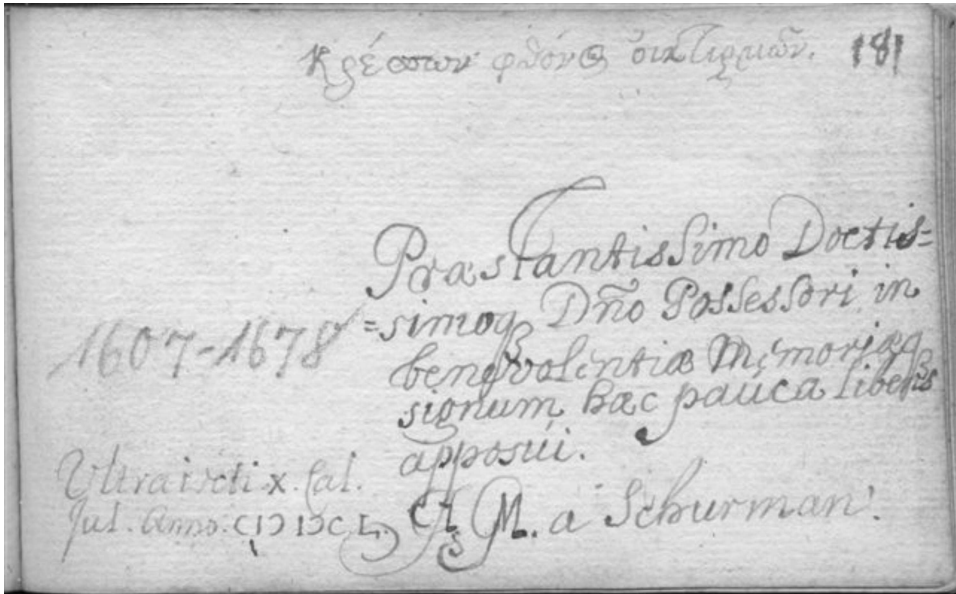 Κρέσσων φθόνος οἰκτιρμῶν.
181
Præstantissimo Doctis=
=simoq₃ Dño Possessori in
benevolentiæ Memoriæq₃
signum hæc pauca libens
apposui.
1607-1678
Ultraiecti x Cal.
Jul. Anno. CIƆ IƆC L.
A. M. a Schurman.